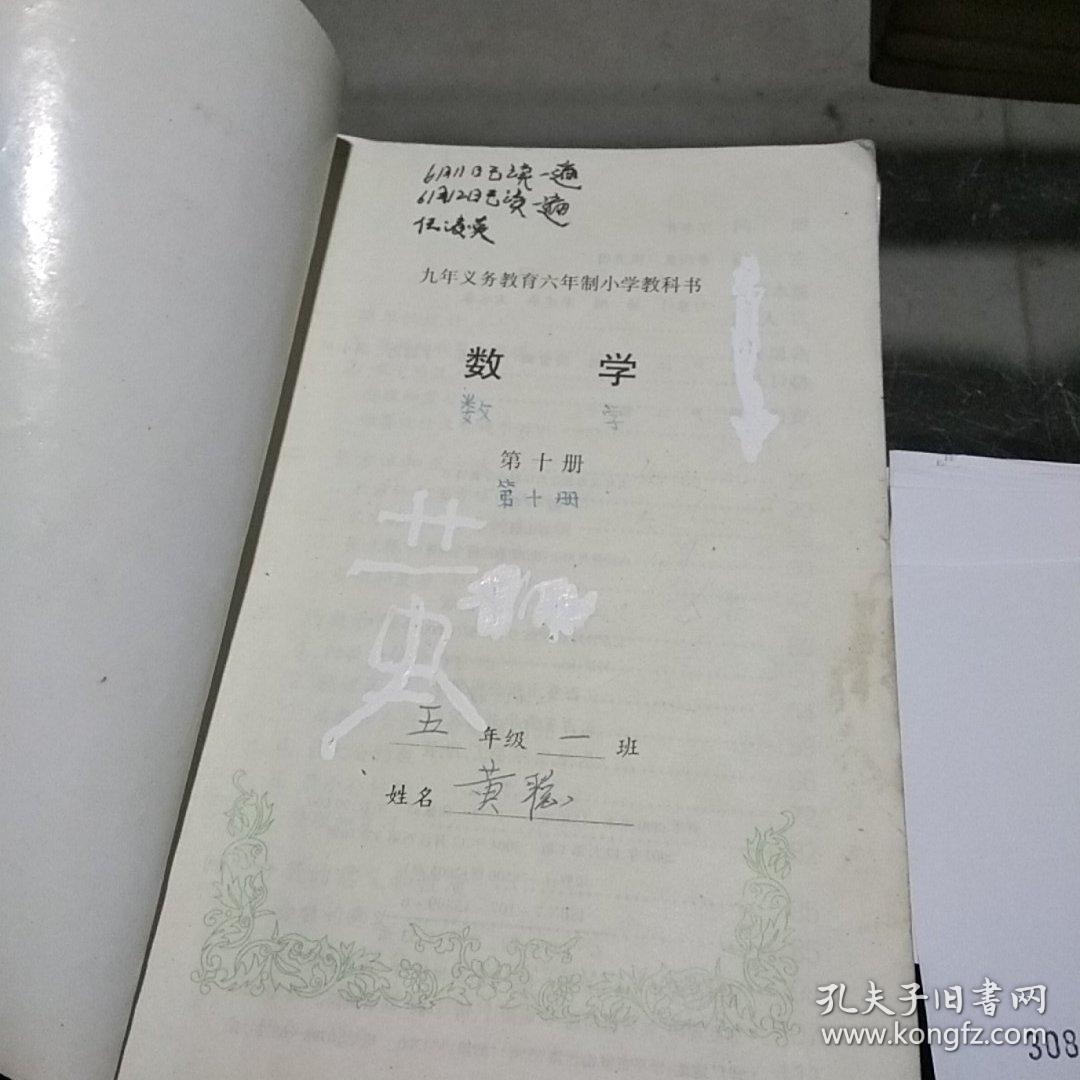 6月11日已读一遍
6月12日已读一遍
任凌英
九年义务教育六年制小学教科书
数 学
数 学
第十册
第十册
英
五 年级 一 班
姓名 黄聪
孔夫子旧書网
www.kongfz.com
308